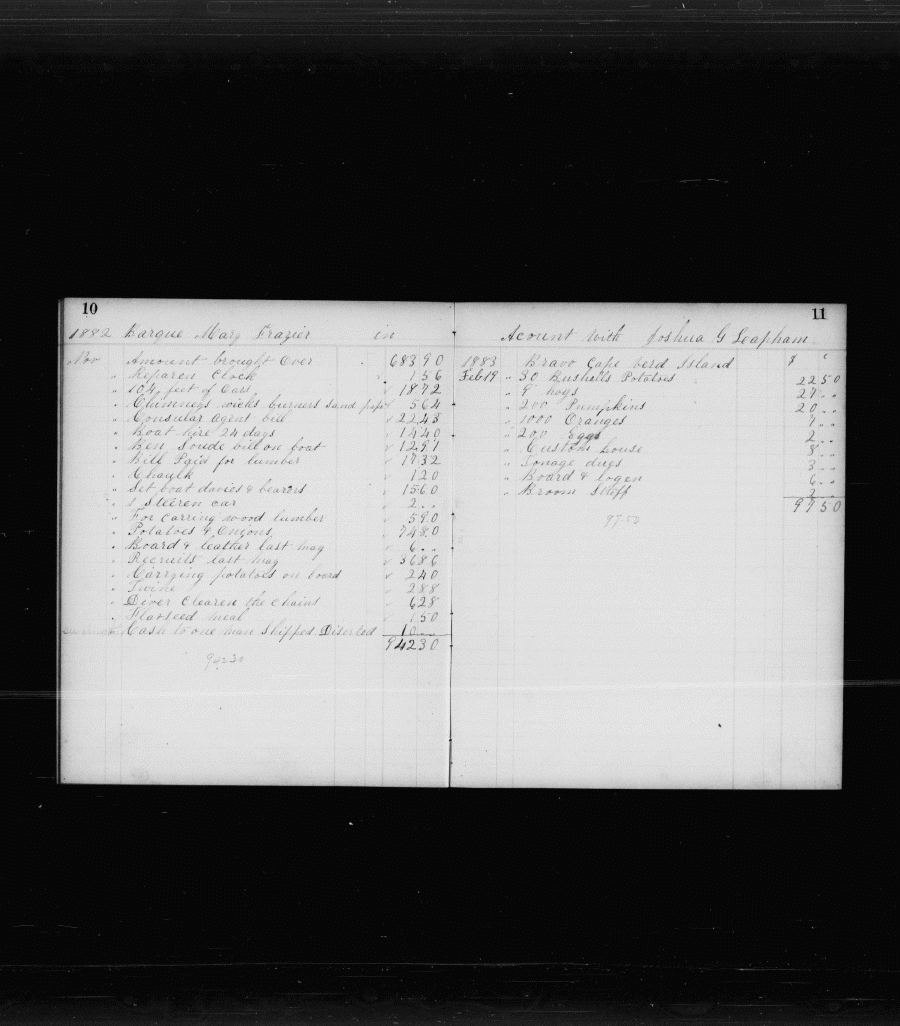 10
1882 Barque Mary Frazier in
Nov Amount brought Over 683 90
" Reparen Clock 1 56
" 104 feet of Oars 18 72
" Chimneys wicks burners sand papr 5 64
" Consular Agent bill 22 43
" Boat hire 24 days 14 40
" Ben Soude bill on boat 12 91
" Bill Paid for lumber 17 32
" Chaulk 1 20
" Set boat davies & bearers 15 60
" 1 Steeren oar 2 . .
" For Carring wood lumber 5 90
" Potatoes & Onyons 74 80
" Board & leather last may 6 . .
" Recruits last may 36 86
" Carrying potatoes on board 2 40
" Twine 2 88
" Diver Clearen the Chains 6 28
" Flaxseed meal 1 50
Cash to one man Shipped Diserted 10 . .
942 30
942 30
11
Acount with Joshua G Leapham
$ c
1883 Bravo Cape verd Island
Feb 19 " 30 Bushells Potatoes 22 50
" 9 hogs 27 . .
" 200 Pumpkins 20 . .
" 1000 Oranges 7 . .
" 200 Eggs 2 . .
" Custom house 8 . .
" Tonage dugs 3 . .
" Board & logen 6 . .
" Broom Stuff 2 . .
97 50
97 50